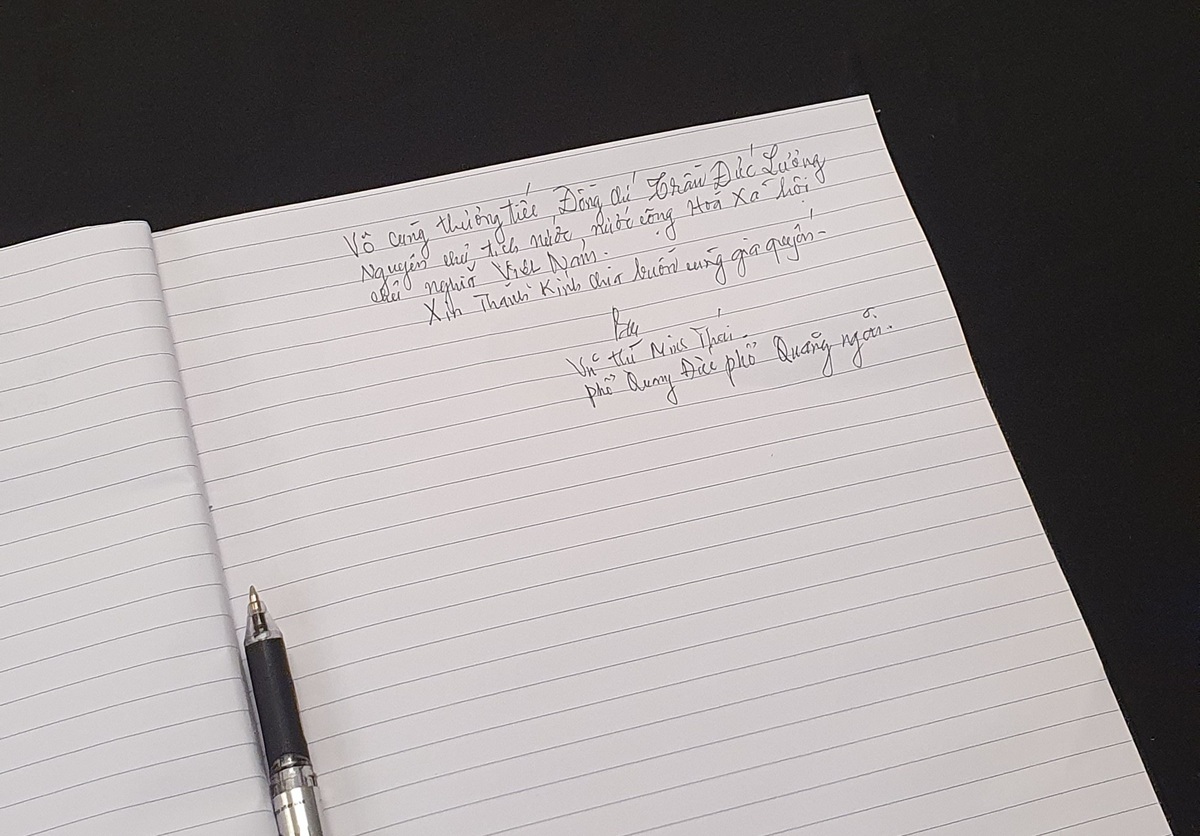 Vô cùng thương tiếc Đồng chí Trần Đức Lương
Nguyên chủ tịch nước, nước cộng Hoà Xã hội
chủ nghĩa Việt Nam.
Xin Thành Kính chia buồn cùng gia quyến.
Vũ thị Minh Thái.
phố Quang Đức phổ Quảng ngãi.